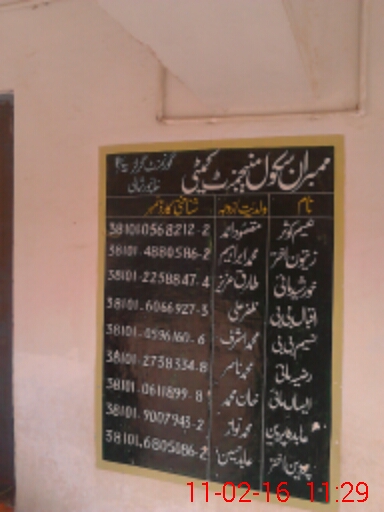 ممبران سکول منیجمنٹ کمیٹی
نام ولدیت / زوجہ شناختی کارڈ نمبر
نسیم کوثر مقصود احمد 381010568212-2
زیتون اختر محمد ابراہیم 38101-4880586-2
خورشید مائی طارق عزیز 38101-2258847-4
اقبال بی بی ظفر علی 38101-6066927-3
نسیم بی بی محمد اشرف 38101-0596160-6
رضیہ مائی محمد ناصر 38101-2738334-8
خان محمد 38101-0611899-8
محمد نواز 38101-9007943-2
پروین اختر عابد حسین 38101-6805086-2
11-02-16 11:29